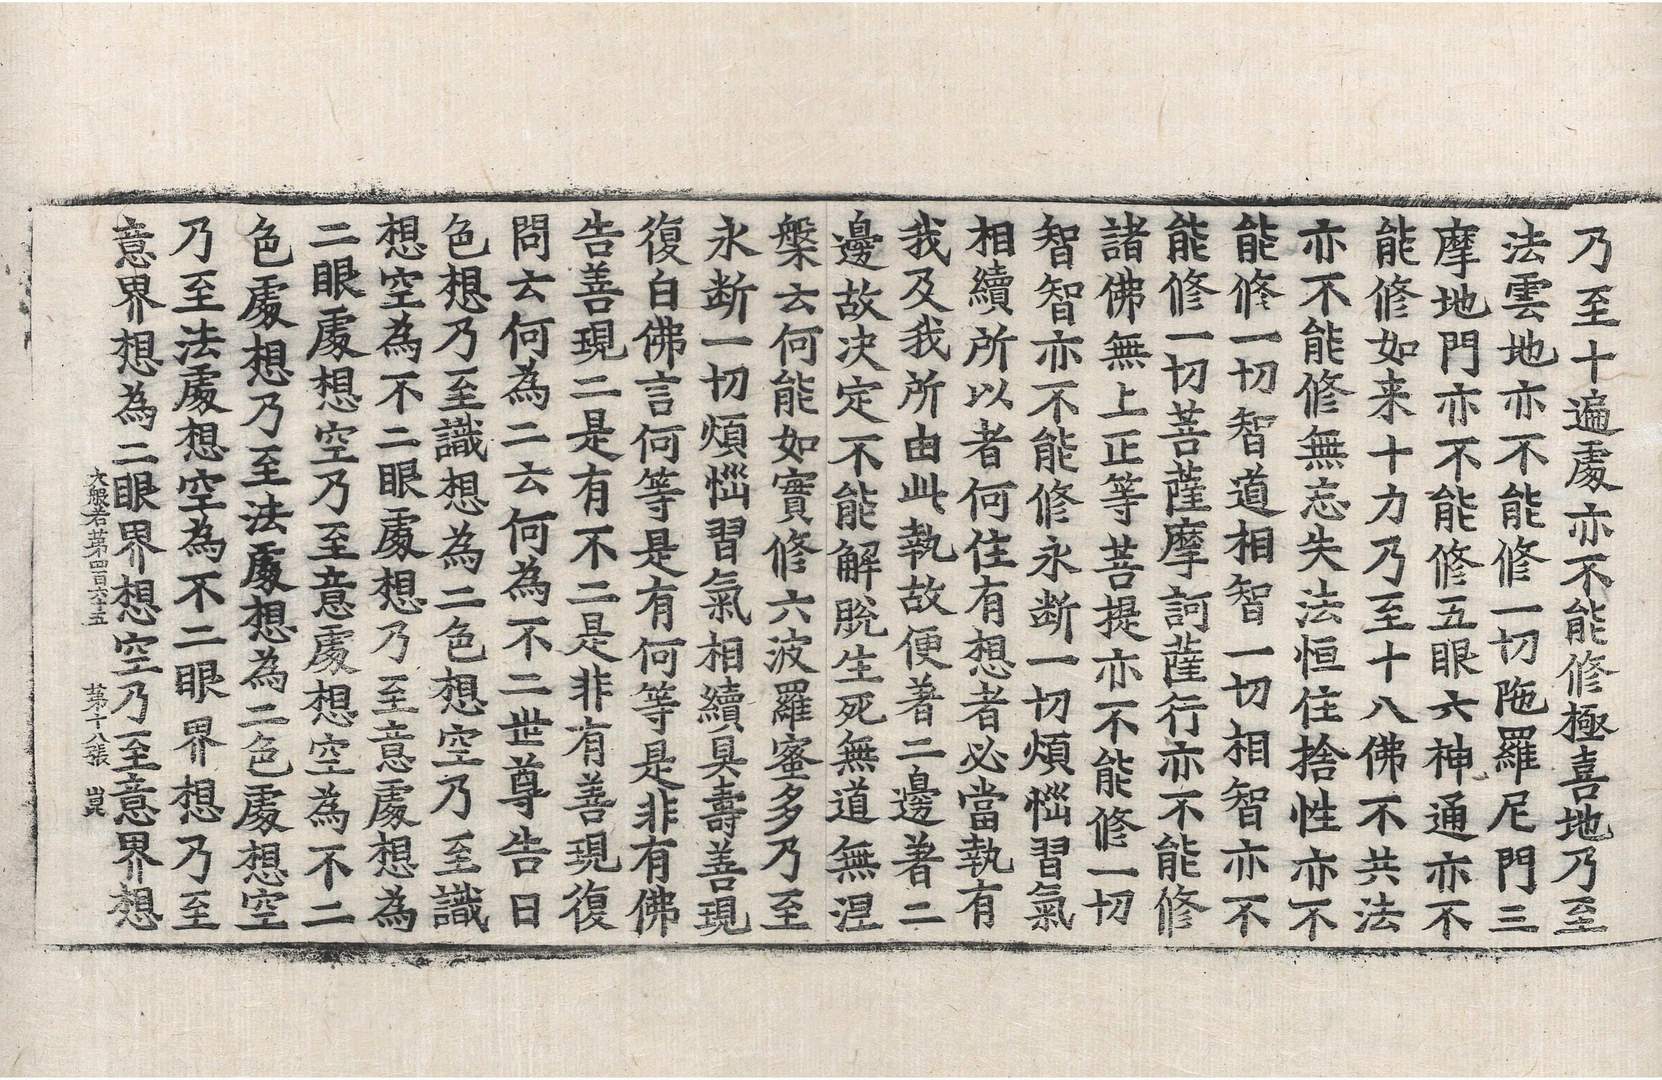 乃至十遍處亦不能修極喜地乃至
法雲地亦不能修一切陁羅尼門三
摩地門亦不能修五眼六神通亦不
能修如来十力乃至十八佛不共法
亦不能修無忘失法恒住捨性亦不
能修一切智道相智一切相智亦不
能修一切菩薩摩訶薩行亦不能修
諸佛無上正等菩提亦不能修一切
智智亦不能修永断一切煩惱習氣
相續所以者何住有想者必當執有
我及我所由此執故便著二邊著二
邊故决定不能解脫生死無道無涅
槃云何能如實修六波羅蜜多乃至
永断一切煩惱習氣相續具壽善現
復白佛言何等是有何等是非有佛
告善現二是有不二是非有善現復
問云何為二云何為不二世尊告曰
色想乃至識想為二色想空乃至識
想空為不二眼處想乃至意處想為
二眼處想空乃至意處想空為不二
色處想乃至法處想為二色處想空
乃至法處想空為不二眼界想乃至
意界想為二眼界想空乃至意界想
大般若苐四百六十五 苐十八張 崑